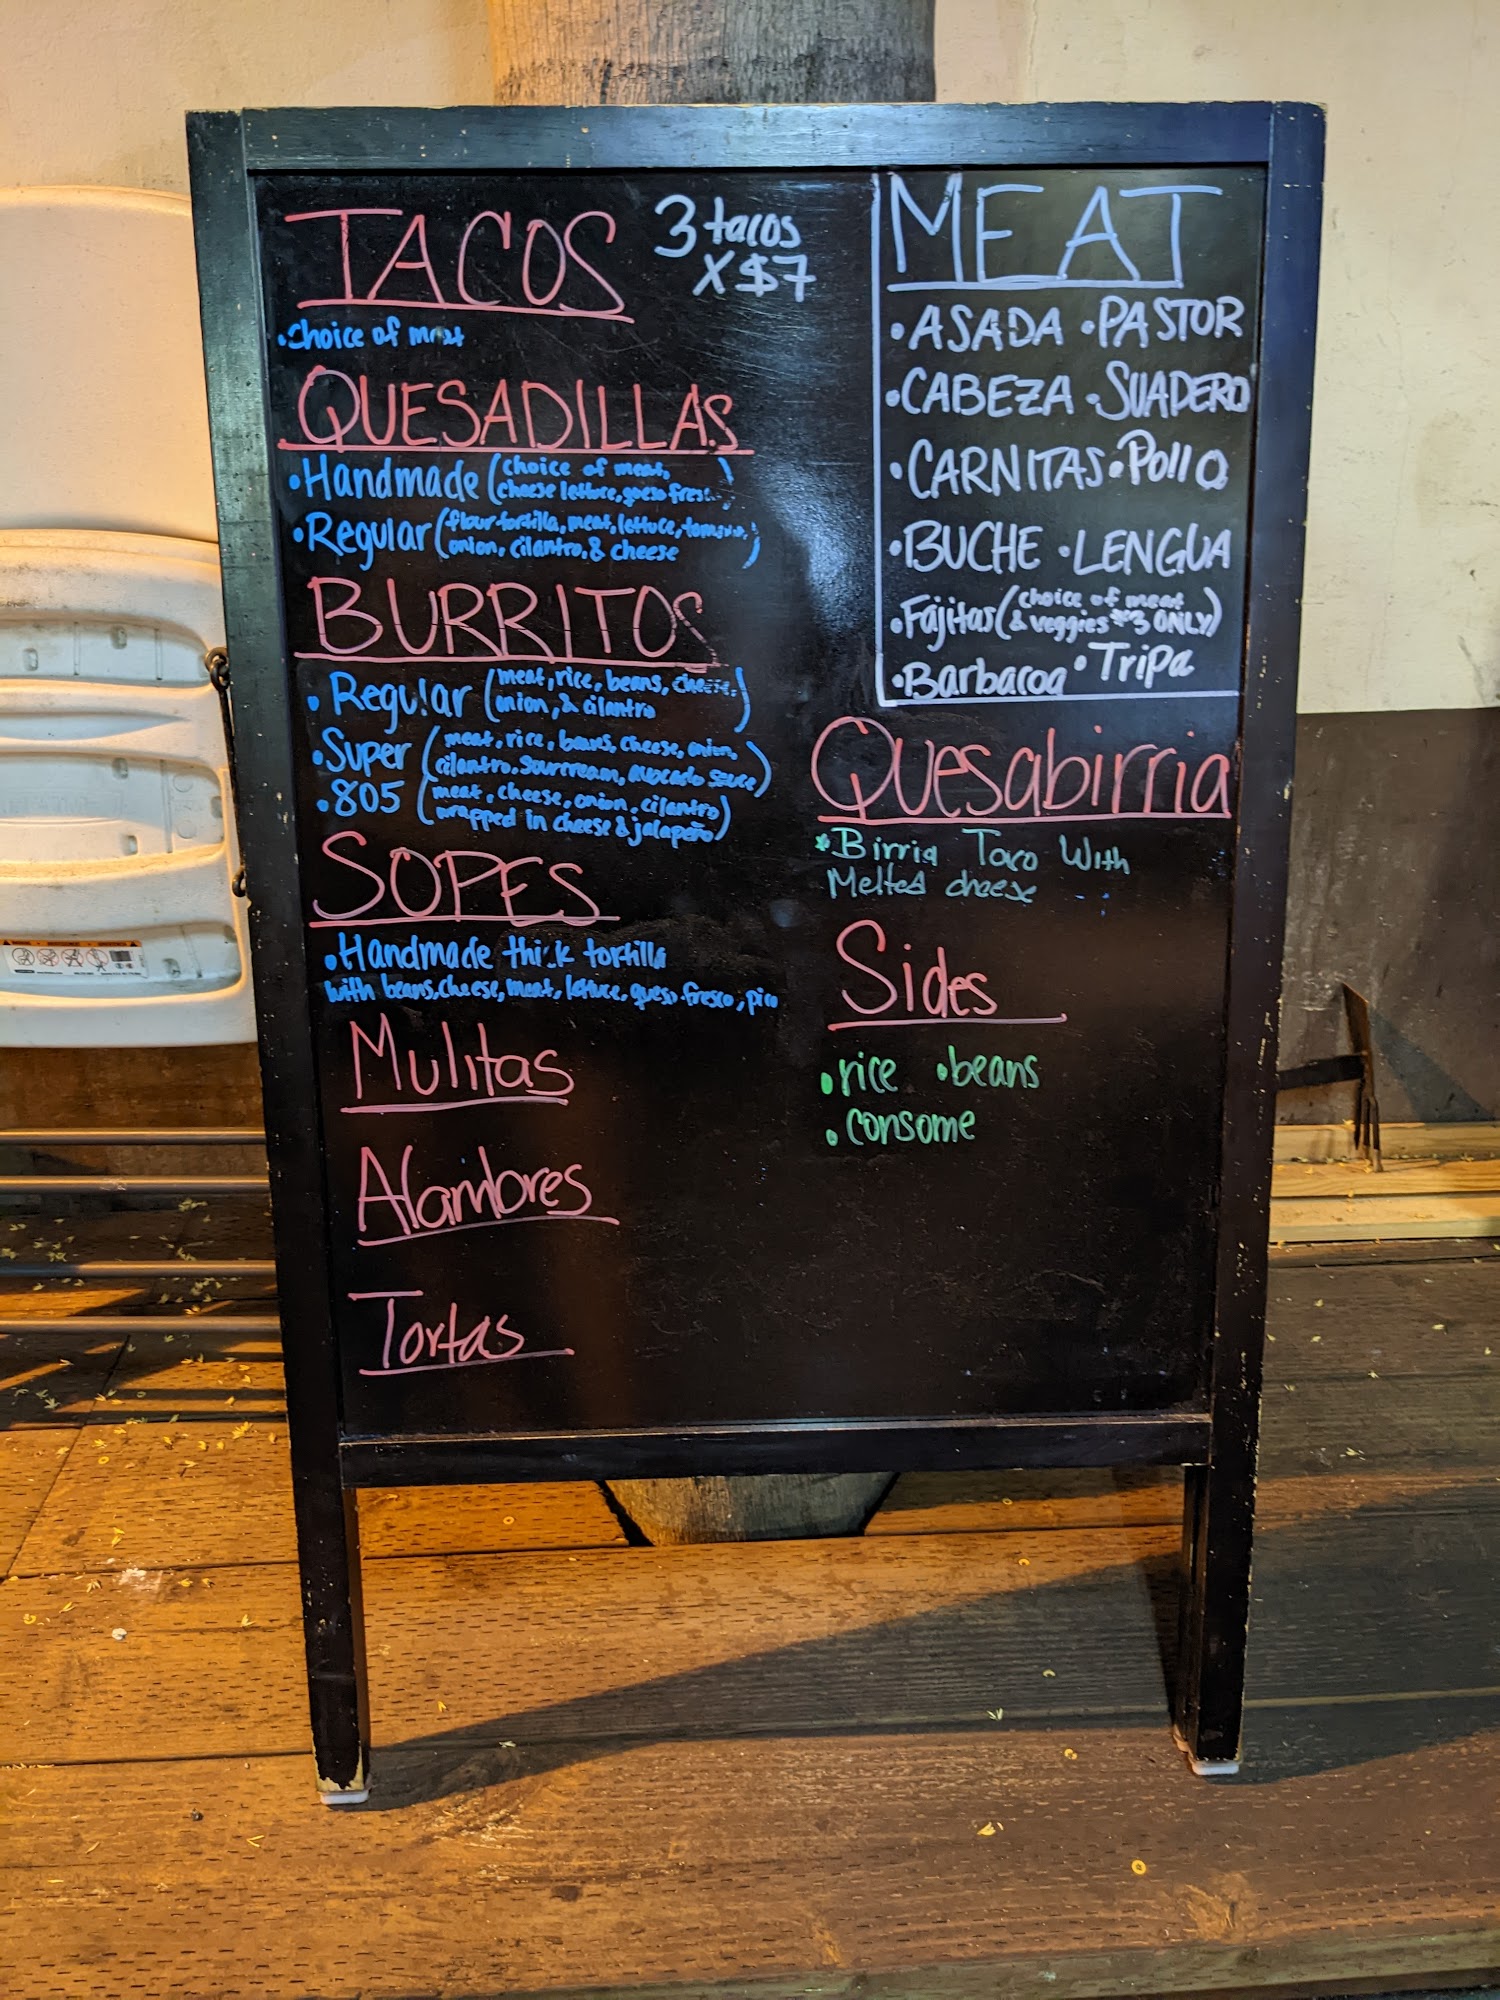 TACOS
3 tacos
X $7
• Choice of meat
QUESADILLAS
• Handmade (choice of meat,
cheese lettuce, queso fres
• Regular (flour tortilla, meat, lettuce,
onion, cilantro, & cheese
BURRITOS
• Regular (meat, rice, beans, cheese,
onion, & cilantro)
• Super (meat, rice, beans, cheese, onion,
cilantro, sourcream, avocado sauce)
• 805 (meat, cheese, onion, cilantro
wrapped in cheese & jalapeño)
SOPES
• Handmade thick tortilla
with beans, cheese, meat, lettuce, queso fresco, pico
Mulitas
Alambres
Tortas
MEAT
• ASADA • PASTOR
• CABEZA • SUADERO
• CARNITAS • Pollo
• BUCHE • LENGUA
• Fajitas (choice of meat
& veggies $3 ONLY)
• Barbacoa • Tripa
Quesabirria
* Birria Taco With
Melted cheese
Sides
• rice • beans
• consome